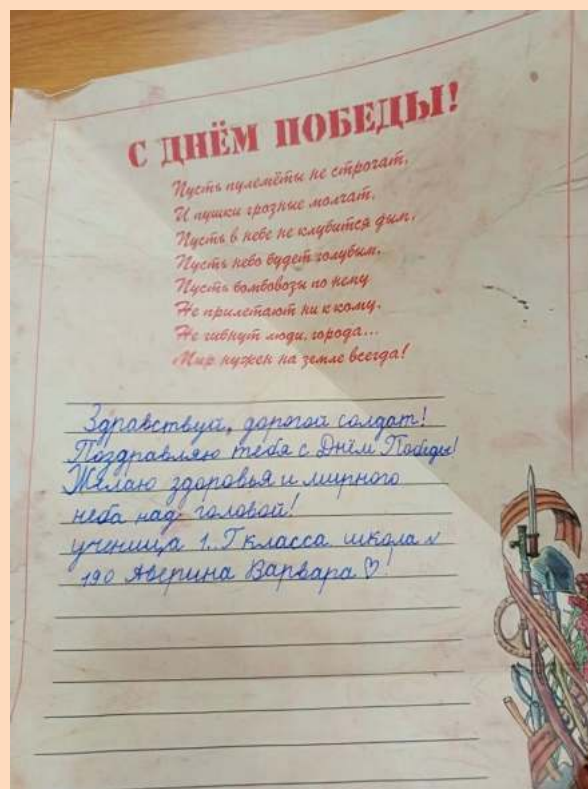 С ДНЁМ ПОБЕДЫ!
Пусть пулемёты не строчат,
И пушки грозные молчат,
Пусть в небе не клубится дым,
Пусть небо будет голубым,
Пусть бомбовозы по нему
Не прилетают ни к кому,
Не гибнут люди, города...
Мир нужен на земле всегда!
Здравствуй, дорогой солдат!
Поздравляю тебя с Днём Победы!
Желаю здоровья и мирного
неба над головой!
ученица 1 "Г" класса школа №
190 Аверина Варвара ♡!